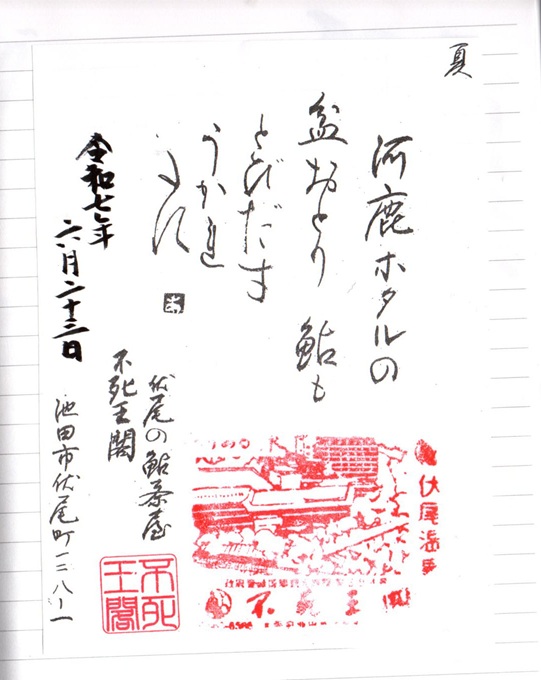 夏
河鹿ホタルの
盆おどり 鮎も
とびだす
うかれ
令和七年
六月二十三日
伏尾の鮎茶屋
不死王閣
池田市伏尾町一二八ー一
伏尾温
不死王
不死
王閣